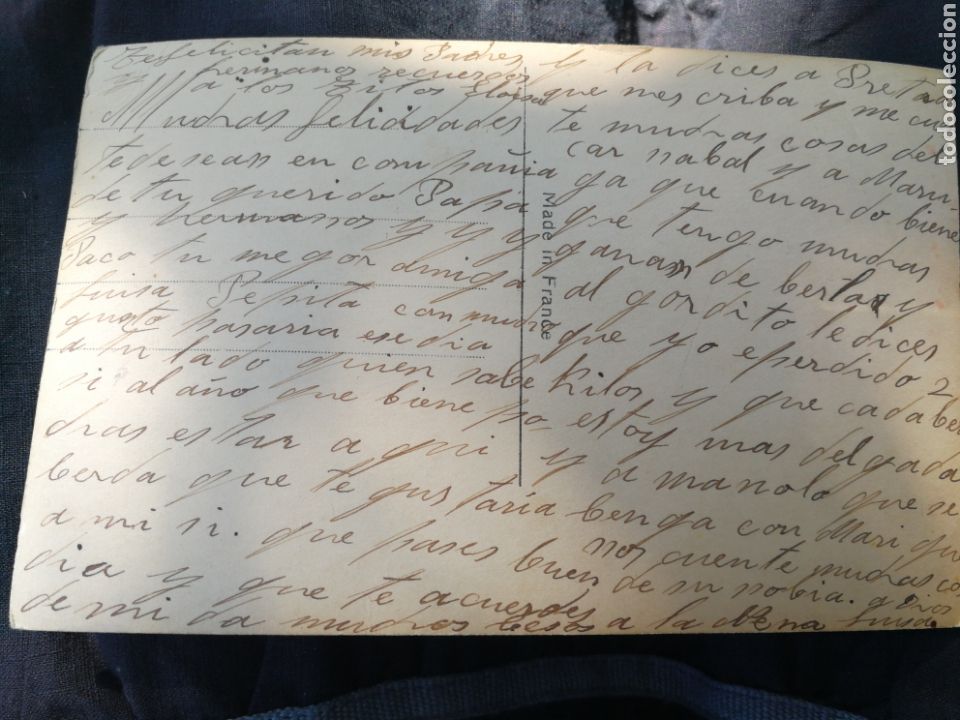 Te felicitan mis Padres
y hermano recuerdos
a los
Muchas felicidades
te desean en compañia
de tu querido Papa
y Hermanos y y y
Paco tu megor amiga
Luisa Pepita con much
gusto pasaria ese dia
a tu lado quien sabe
si al año que biene po
dras estar a qui
berda que te gustaria
a mi si. que pases buen
dia y que te acuerdes
de mi da muchos besos a la Nena
y la dices a
que mescriba y me cu
te muchas cosas del
car nabal y a Maru
ga que cuando biene
que tengo muchas
ganas de berla y
al gordito le dices
que yo e perdido 2
Kilos y que cada bez
estoy mas delgada
y a manolo que se
benga con Mari que
nos cuente muchas cos
de su nobia. adios
Luisa
Made in France
todocoleccion.net